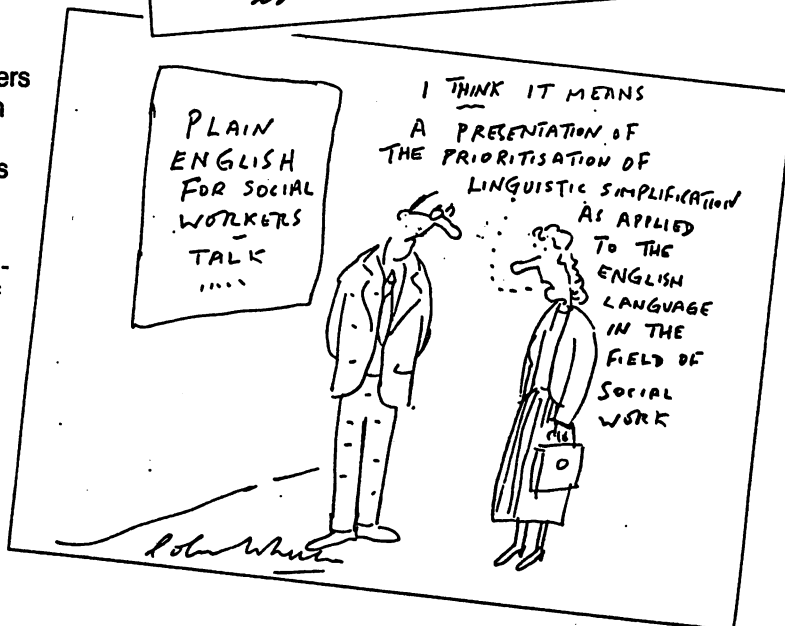 ers
s
PLAIN
ENGLISH
FOR SOCIAL
WORKERS
–
TALK
.....
I THINK IT MEANS
A PRESENTATION OF
THE PRIORITISATION OF
LINGUISTIC SIMPLIFICATION
AS APPLIED
TO THE
ENGLISH
LANGUAGE
IN THE
FIELD OF
SOCIAL
WORK